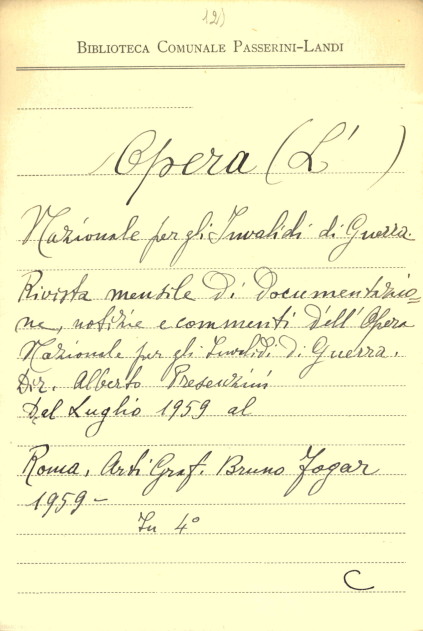 12)
BIBLIOTECA COMUNALE PASSERINI-LANDI
Opera (L')
Nazionale per gli Invalidi di Guerra.
Rivista mensile di documentazio=
ne, notizie e commenti dell'Opera
Nazionale per gli Invalidi di Guerra.
Dir. Alberto Presenzini
Dal Luglio 1959 al
Roma, Arti Graf. Bruno Fogar
1959 -
In 4°
C